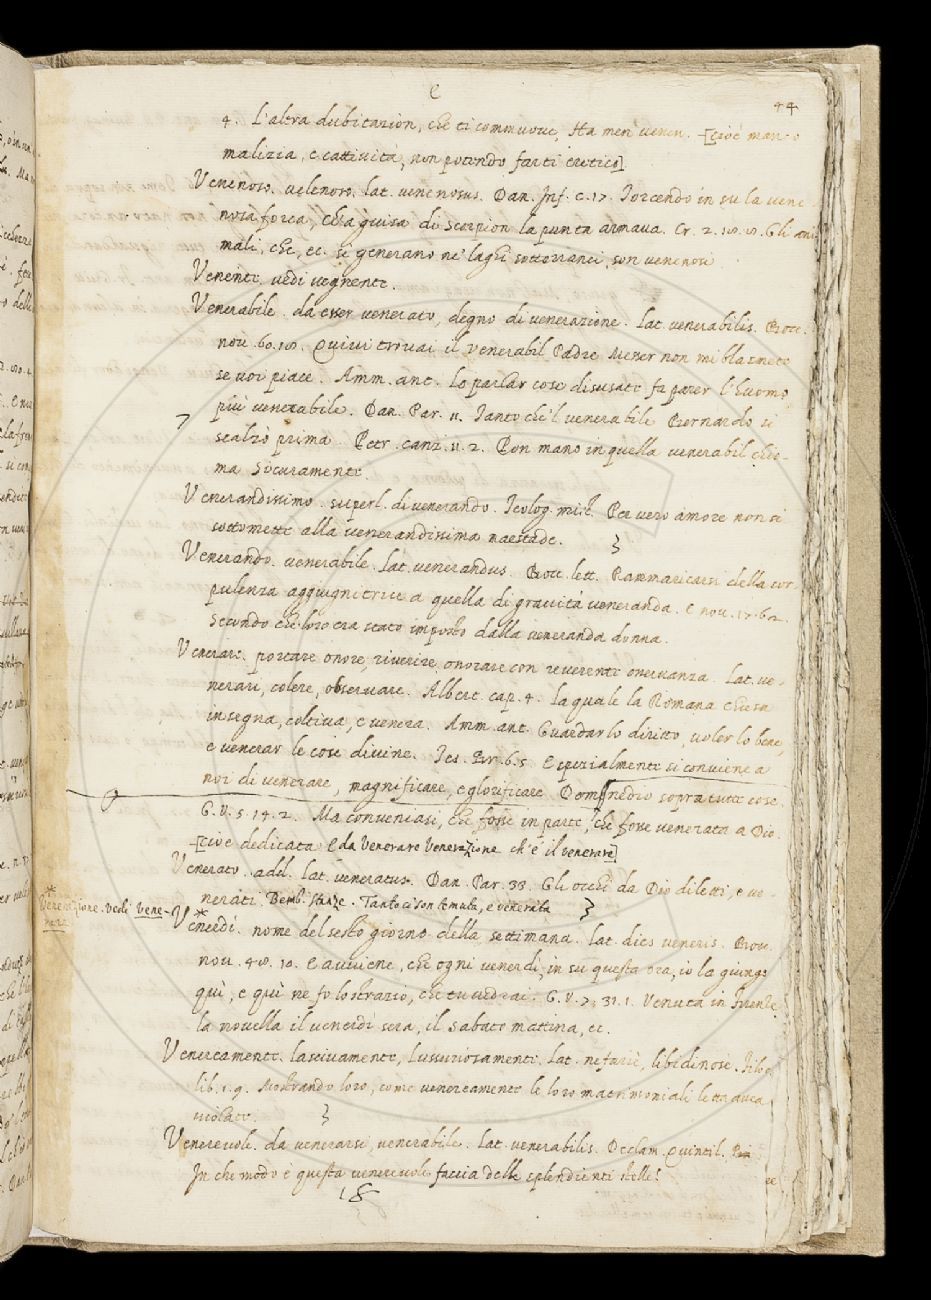 e
44
4. L'altra dubitazion, che ti commuove, Ha men venen. [cioè man-
malizia, e cattività, non potendo farti eretico].
Venenoso. velenoso. lat. venenosus. Dan. Inf. c. 17. Torcendo in su la vene-
nosa forca, Ch'a guisa di scorpion la punta armava. Cr. 2. Gli ani-
mali, che, ec. si generano ne' laghi sotterranei, son venenosi
Venente, vedi vegnente.
Venerabile. da esser venerato, degno di venerazione. Lat. venerabilis. Bocc.
nov. 60. Quivi trovai il venerabil Padre Meser non mi blasmete
se voi piace. Amm. ant. Lo parlar cose disusate fa parer l'huomo
più venerabile. Dan. Par. 11. Tanto che'l venerabile Bernardo si
scalzò prima. Petr. canz. 11. 2. Pon mano in quella venerabil chio-
ma Securamente.
Venerandissimo. superl. di venerando. Teolog. mist. Per vero amore non si
sottomette alla venerandissima maestade.
Venerando. venerabile. Lat. venerandus. Bocc. lett. Rammaricarsi della cor-
pulenza aggiugnitrice a quella di gravità veneranda. E nov. 17. 62.
Secondo che loro era stato imposto dalla veneranda donna.
Venerare. portare onore, riverire, onorare con reverente osservanza. Lat. ve-
nerari, colere, observare. Albert. cap. 4. La quale la Romana chiesa
insegna, coltiva, e venera. Amm. ant. Guardar lo diritto, voler lo bene,
e venerar le cose divine. Tes. Br. 6. 5. E spezialmente si conviene a
noi di venerare, magnificare, e glorificare Domenedio sopra tutte cose.
G. V. 5. 14. 2. Ma conveniasi, che fosse in parte, che fosse venerata a Dio.
[cioè dedicata E da Venerare Venerazione ch'è il venerare]
Venerato. add. Lat. veneratus. Dan. Par. 33. Gli occhi da Dio diletti, e ve-
nerati. Bemb. stanze. Tanto ci son temuta, e venerata
* Venerazione. vedi Vene-
rare
* Venerdì. nome del sesto giorno della settimana. Lat. dies veneris. Bocc.
nov. 48. 10. E avviene, che ogni venerdì, in su questa ora, io la giungo
quì, e quì ne fo lo strazio, che tu vedrai. G. V. 7. 31. 1. Venuta in Firenze
la novella il venerdì sera, il sabato mattina, ec.
Venereamente. lascivamente, Lussuriosamente. Lat. nefariè, libidinosè. Filoc.
lib. 1. 9. Mostrando loro, come venereamente le loro matrimoniali letta avea
violate.
Venerevole. da venerarsi, venerabile. Lat. venerabilis. Declam. Quintil.
In che modo è questa venerevole faccia delle splendienti stelle!
18